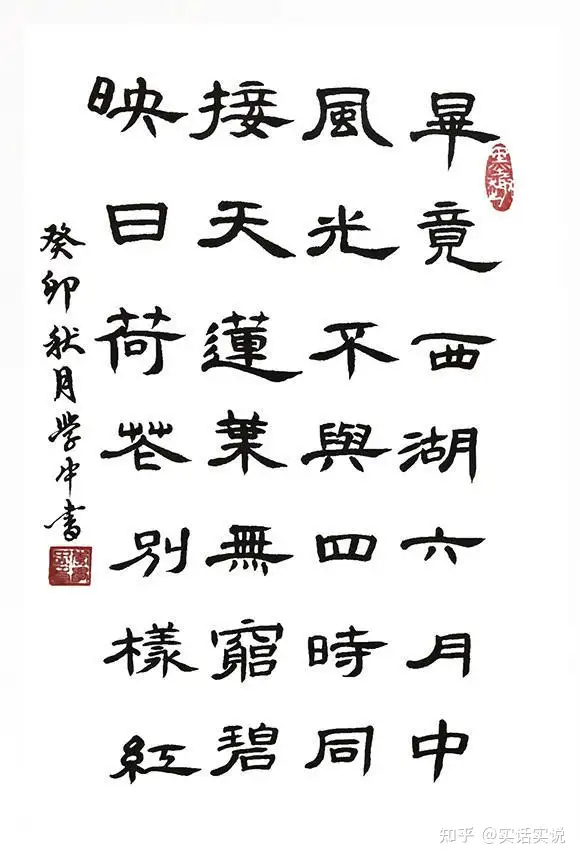 畢竟西湖六月中
風光不與四時同
接天蓮葉無窮碧
映日荷花別樣紅
癸卯秋月学中書
知乎 @实话实说